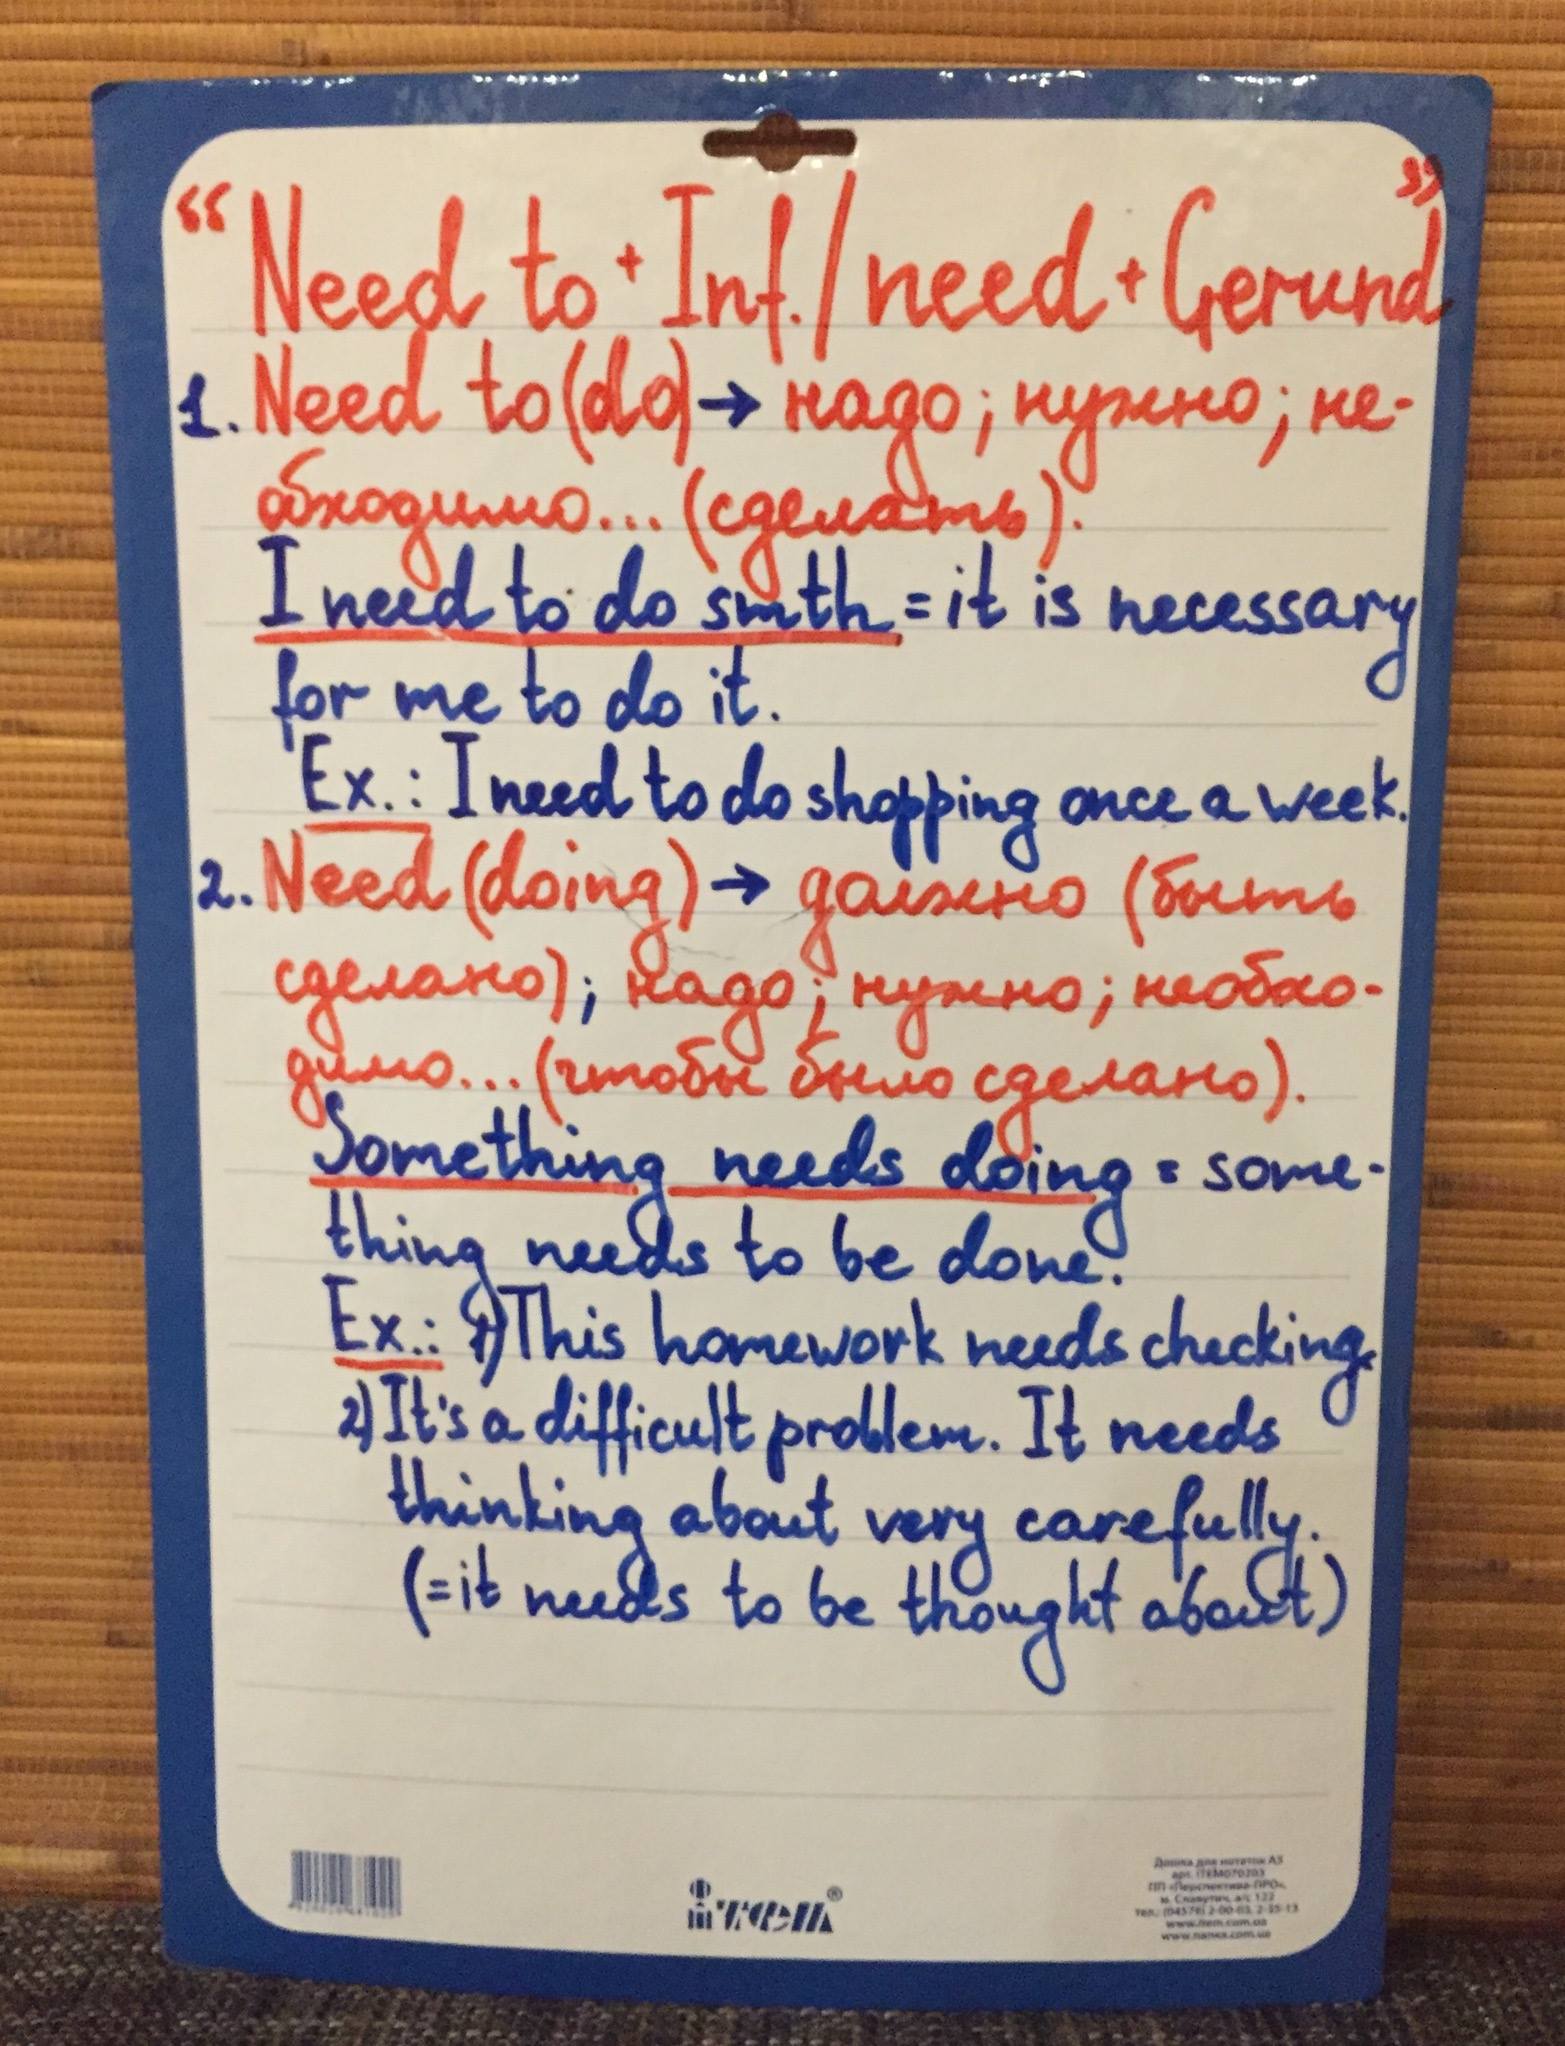 “Need to + Inf./need + Gerund”
1. Need to (do) → надо; нужно; не-
обходимо... (сделать).
I need to do smth = it is necessary
for me to do it.
Ex.: I need to do shopping once a week.
2. Need (doing) → должно (быть
сделано); надо; нужно; необхо-
димо... (чтобы было сделано).
Something needs doing = some-
thing needs to be done.
Ex.: 1) This homework needs checking.
2) It's a difficult problem. It needs
thinking about very carefully.
(= it needs to be thought about)
item®
Дошка для нотаток А3
арт. ITEM070203
ПП «Перспектива-ПРО»,
м. Славутич, а/с 122
тел.: (04579) 2-00-03, 2-35-13
www.item.com.ua
www.папка.com.ua